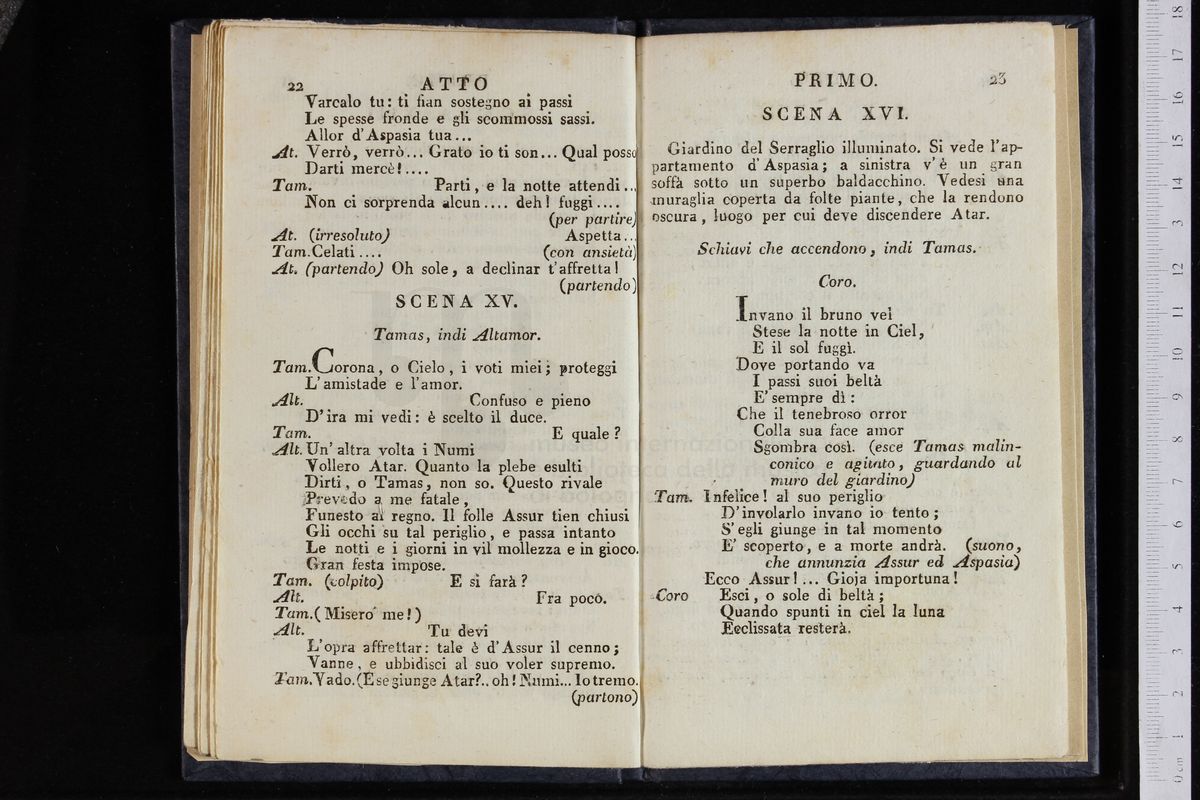 22 ATTO
Varcalo tu: ti fian sostegno ai passi
Le spesse fronde e gli scommossi sassi.
Allor d'Aspasia tua...
At. Verrò, verrò... Grato io ti son... Qual posso
Darti mercè!....
Tam. Parti, e la notte attendi...
Non ci sorprenda alcun.... deh! fuggi....
(per partire)
At. (irresoluto) Aspetta...
Tam. Celati.... (con ansietà)
At. (partendo) Oh sole, a declinar t'affretta!
(partendo)
SCENA XV.
Tamas, indi Altamor.
Tam. Corona, o Cielo, i voti miei; proteggi
L'amistade e l'amor.
Alt. Confuso e pieno
D'ira mi vedi: è scelto il duce.
Tam. E quale?
Alt. Un'altra volta i Numi
Vollero Atar. Quanto la plebe esulti
Dirti, o Tamas, non so. Questo rivale
Prevedo a me fatale,
Funesto al regno. Il folle Assur tien chiusi
Gli occhi su tal periglio, e passa intanto
Le notti e i giorni in vil mollezza e in gioco.
Gran festa impose.
Tam. (colpito) E sì farà?
Alt. Fra poco.
Tam. (Misero me!)
Alt. Tu devi
L'opra affrettar: tale è d'Assur il cenno;
Vanne, e ubbidisci al suo voler supremo.
Tam. Vado. (E se giunge Atar?.. oh! Numi... Io tremo.
(partono)
PRIMO. 23
SCENA XVI.
Giardino del Serraglio illuminato. Si vede l'ap-
partamento d'Aspasia; a sinistra v'è un gran
soffà sotto un superbo baldacchino. Vedesi una
muraglia coperta da folte piante, che la rendono
oscura, luogo per cui deve discendere Atar.
Schiavi che accendono, indi Tamas.
Coro.
Invano il bruno vel
Stese la notte in Ciel,
E il sol fuggì.
Dove portando va
I passi suoi beltà
E' sempre dì:
Che il tenebroso orror
Colla sua face amor
Sgombra così. (esce Tamas malin-
conico e agitato, guardando al
muro del giardino)
Tam. Infelice! al suo periglio
D'involarlo invano io tento;
S'egli giunge in tal momento
E' scoperto, e a morte andrà. (suono,
che annunzia Assur ed Aspasia)
Ecco Assur!... Gioja importuna!
Coro Esci, o sole di beltà;
Quando spunti in ciel la luna
Ecclissata resterà.
0 cm 1 2 3 4 5 6 7 8 9 10 11 12 13 14 15 16 17 18